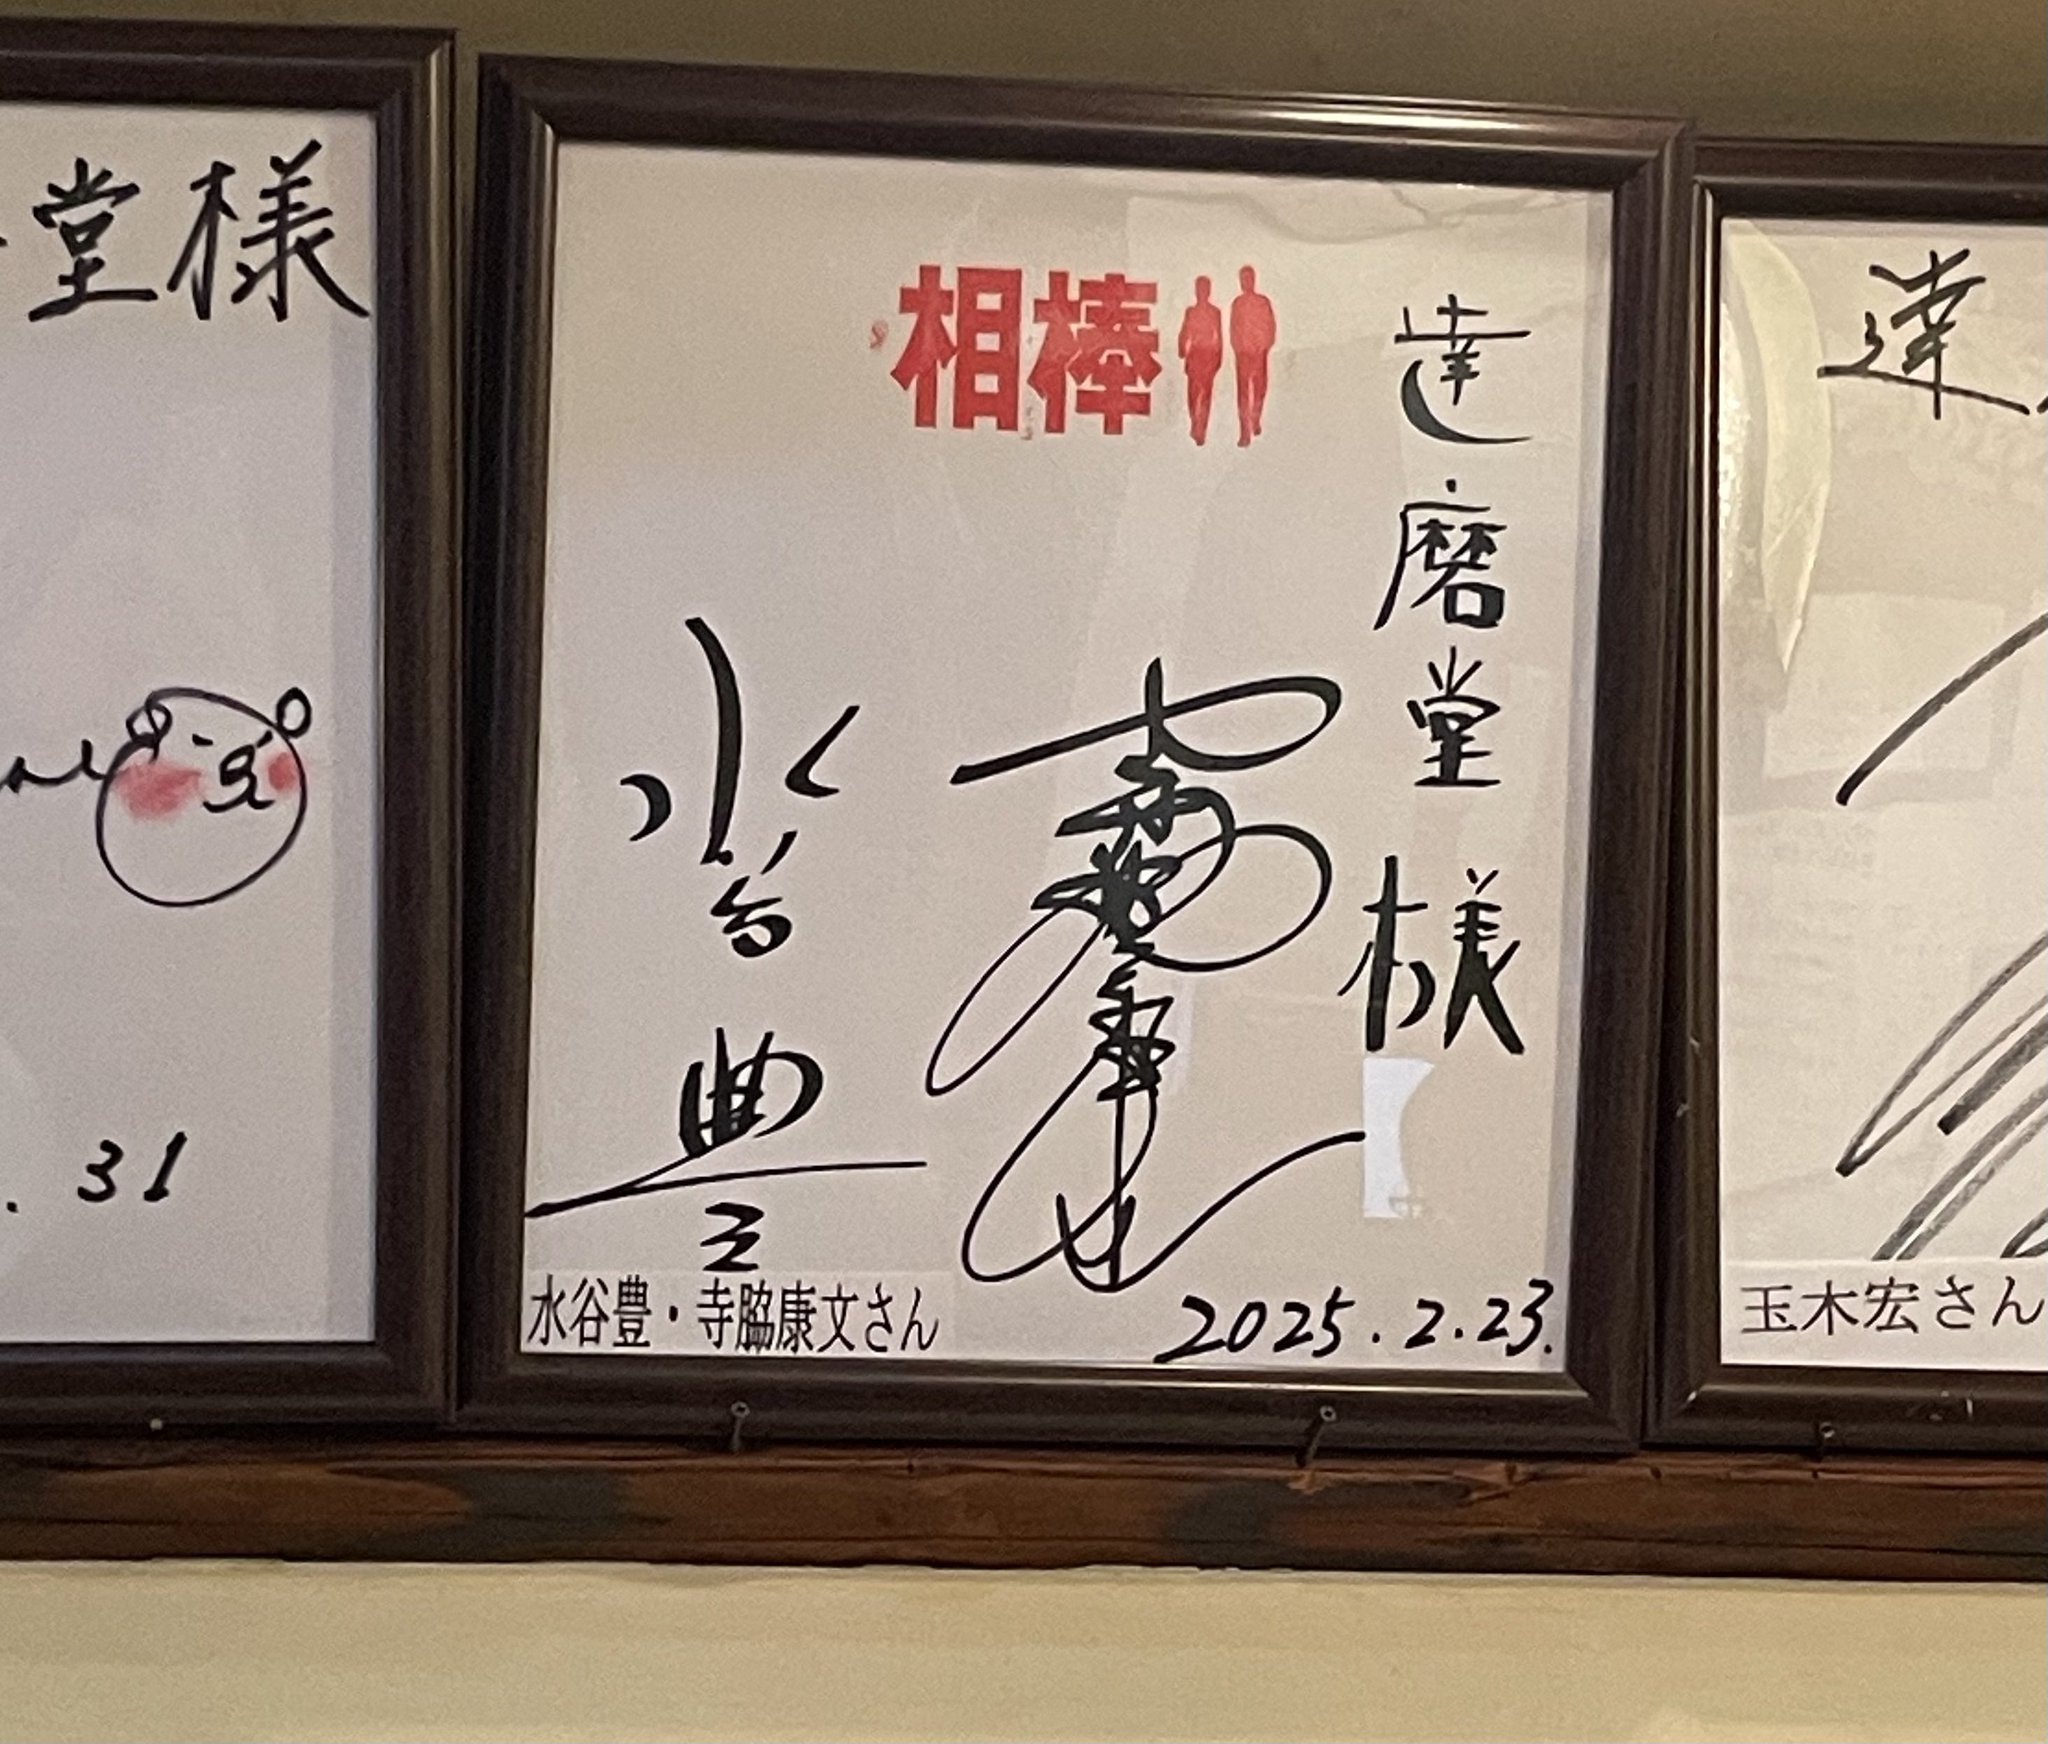 堂様
31
相棒
達磨堂様
水谷豊
水谷豊・寺脇康文さん
2025.2.23.
達
玉木宏さん